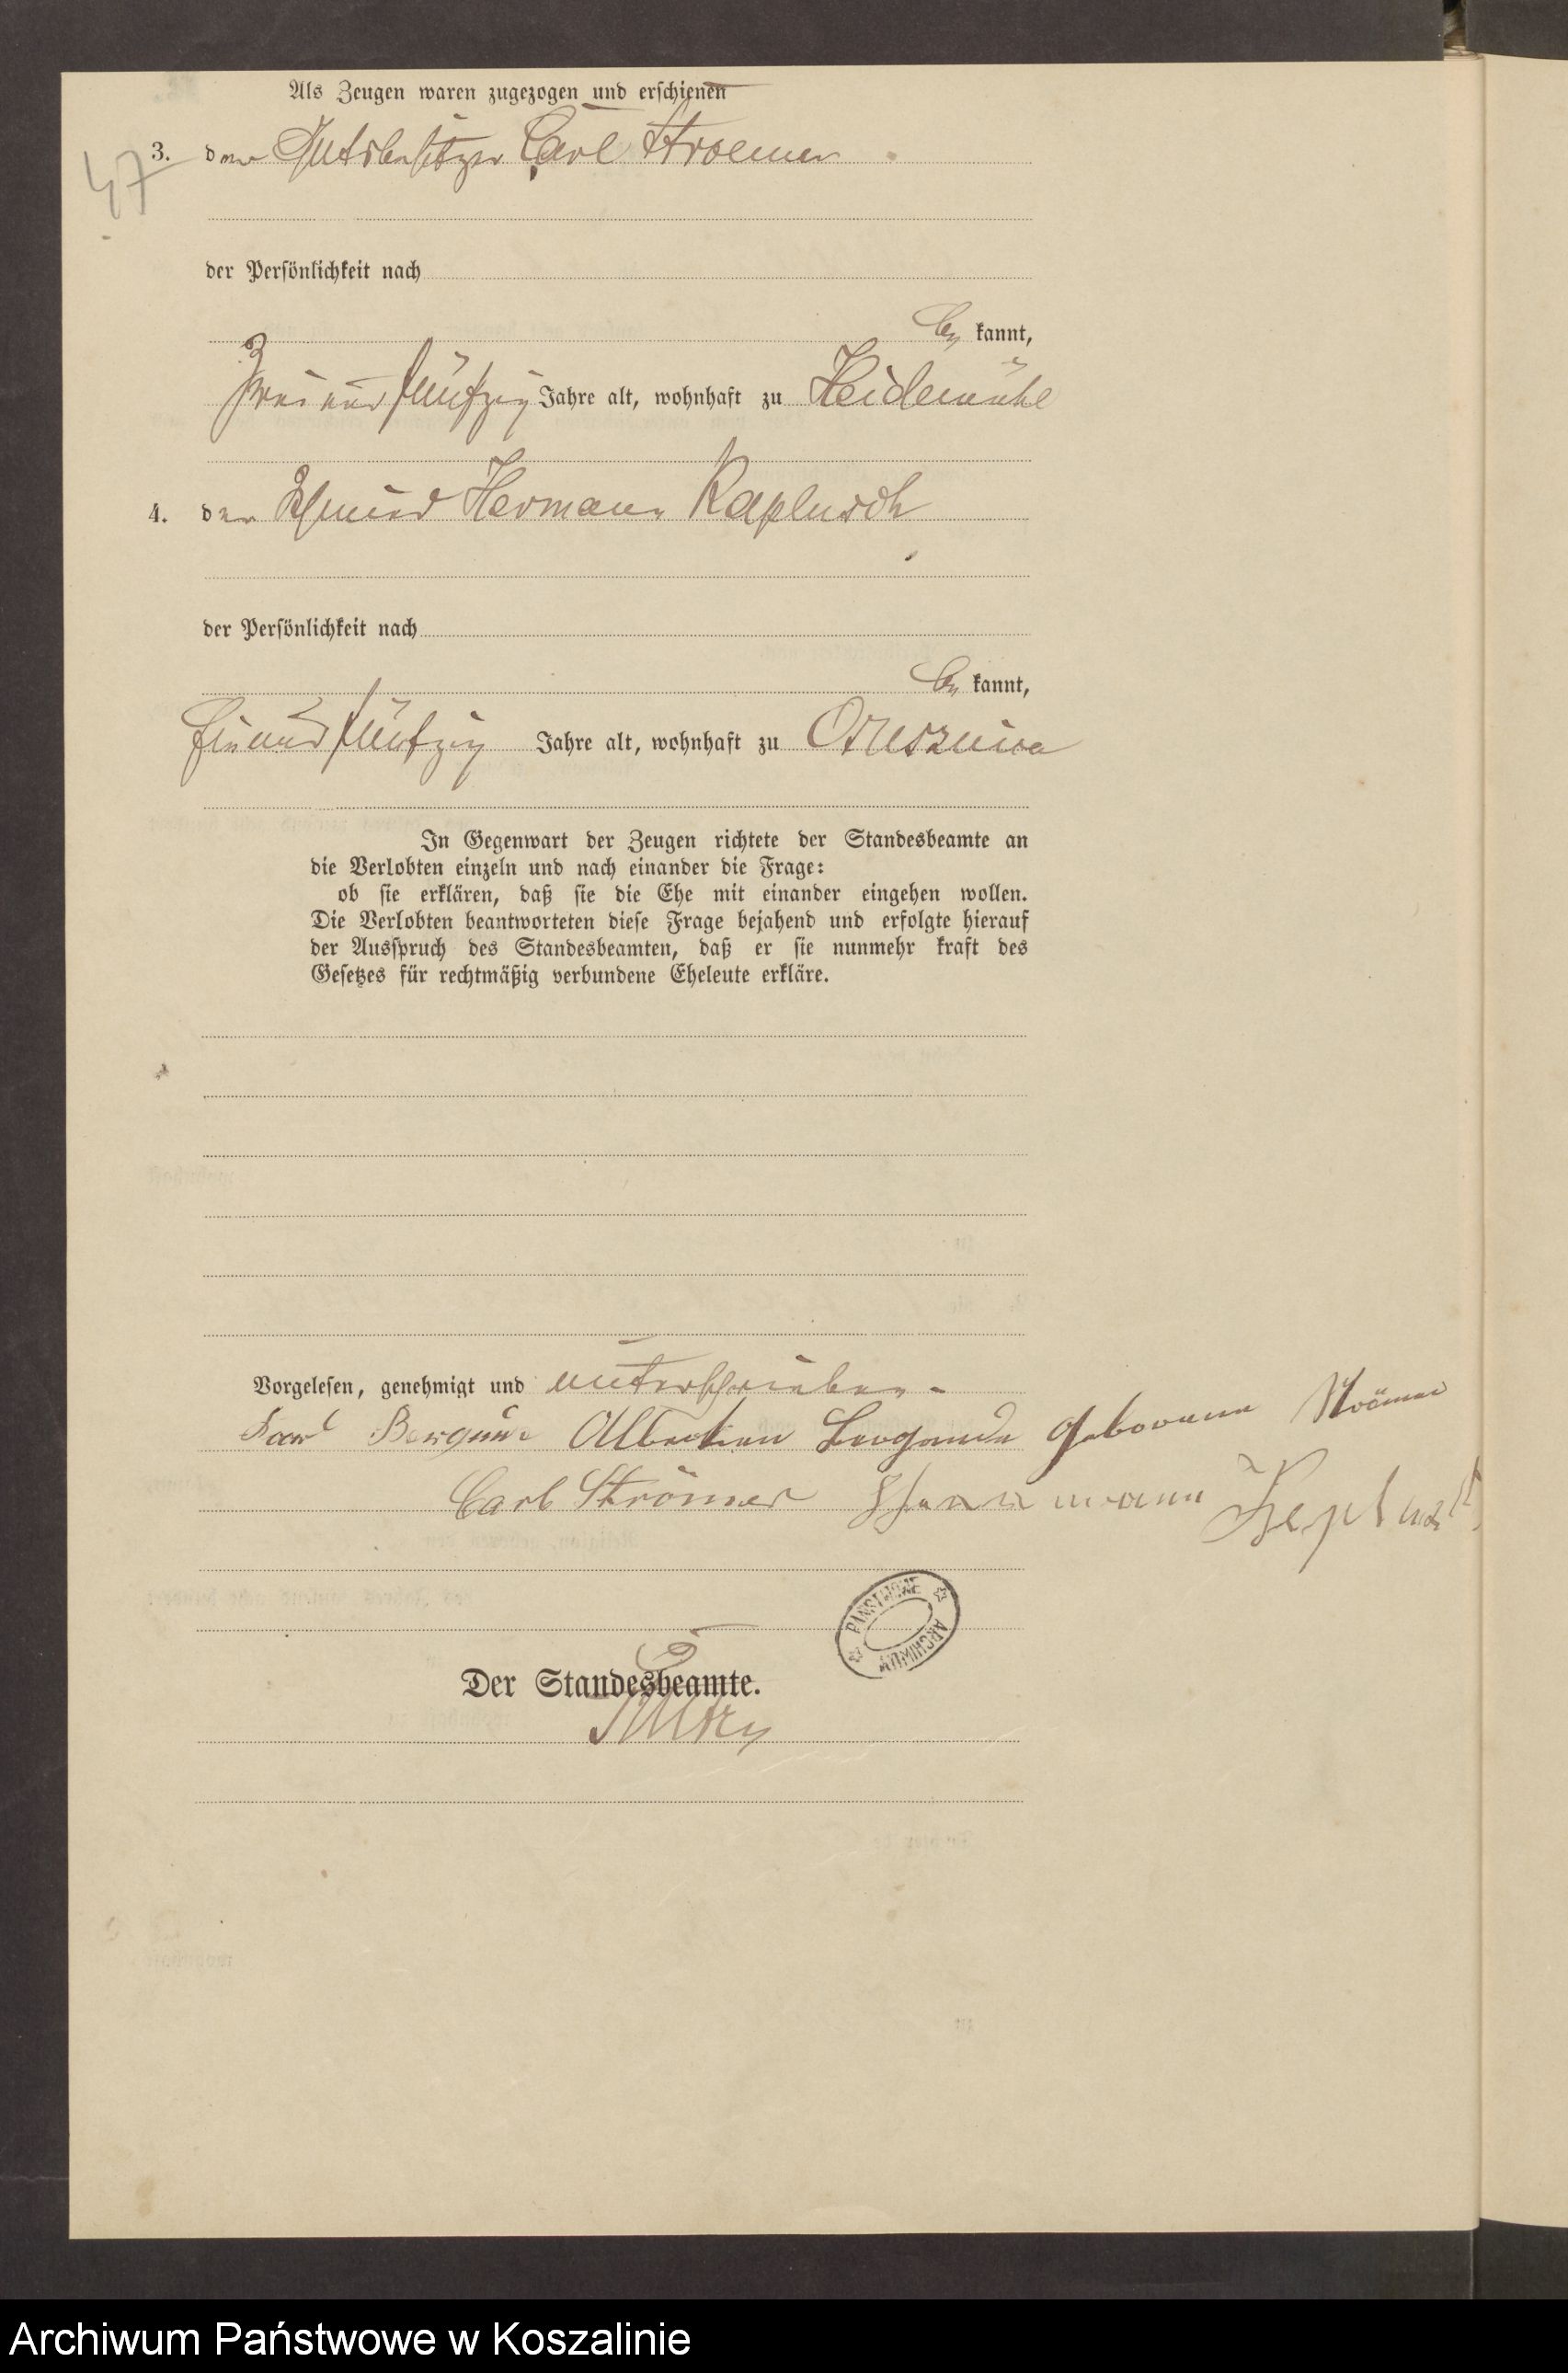 Als Zeugen waren zugezogen und erschienen
47
3. der Gutsbesitzer Carl Stroemer
der Persönlichkeit nach
be kannt,
zwei und fünfzig Jahre alt, wohnhaft zu Heidemühl
4. der Schmied Hermann Raplusch
der Persönlichkeit nach
be kannt,
ein und fünfzig Jahre alt, wohnhaft zu
In Gegenwart der Zeugen richtete der Standesbeamte an
die Verlobten einzeln und nach einander die Frage:
ob sie erklären, daß sie die Ehe mit einander eingehen wollen.
Die Verlobten beantworteten diese Frage bejahend und erfolgte hierauf
der Ausspruch des Standesbeamten, daß er sie nunmehr kraft des
Gesetzes für rechtmäßig verbundene Eheleute erkläre.
Vorgelesen, genehmigt und unterschrieben.
Bergande Albertine Bergande geborene Strömer
Carl Strömer
PAŃSTWOWE ARCHIWUM
Der Standesbeamte.
Archiwum Państwowe w Koszalinie